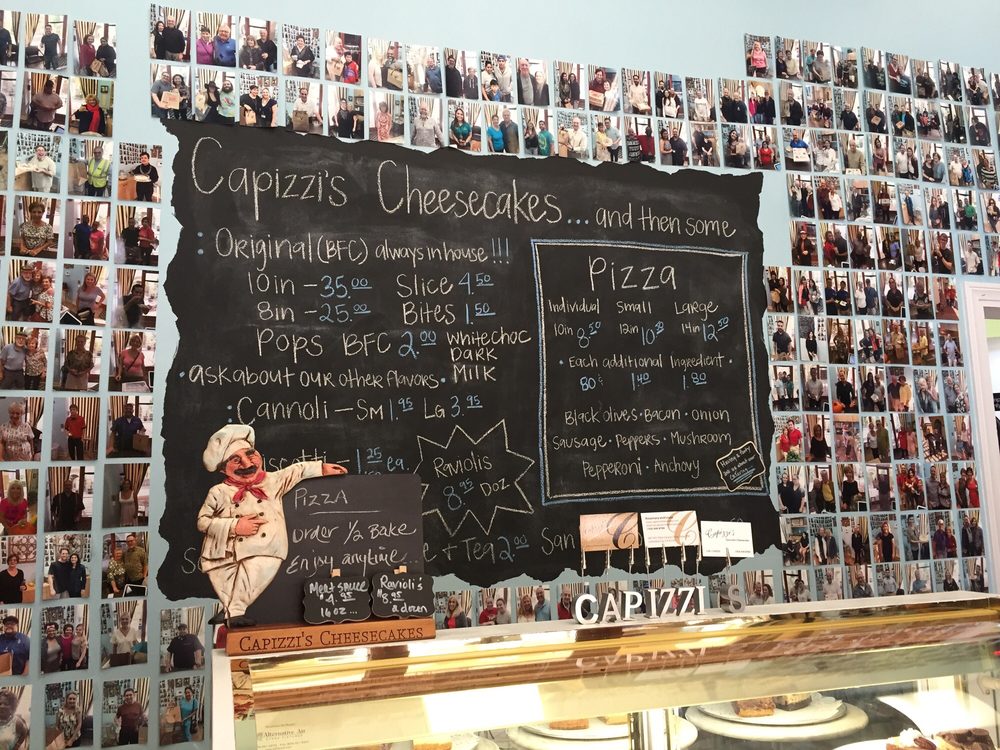 Capizzi's Cheesecakes... and then some
: Original (BFC) always in house!!!
10in - 35.00 Slice 4.50
8in - 25.00 Bites 1.50
Pops BFC 2.00 White choc
Dark
Milk
• ask about our other flavors •
: Cannoli - Sm 1.95 Lg 3.95
1.25 ea.
Raviolis
8.95 Doz
+ Tea 2.00 San
Pizza
Individual Small Large
10in 8.50 12in 10.50 14in 12.50
• Each additional Ingredient •
80¢ 1.40 1.80
Black olives • Bacon • onion
Sausage • Peppers • Mushroom
Pepperoni • Anchovy
Having a Party?
Catering
PIZZA
order 1/2 Bake
Enjoy anytime...
Meat sauce
16 oz...
Ravioli's
8.95
a dozen
CAPIZZI'S CHEESECAKES
Capizzi's
CAPIZZI'S
Alternative Air